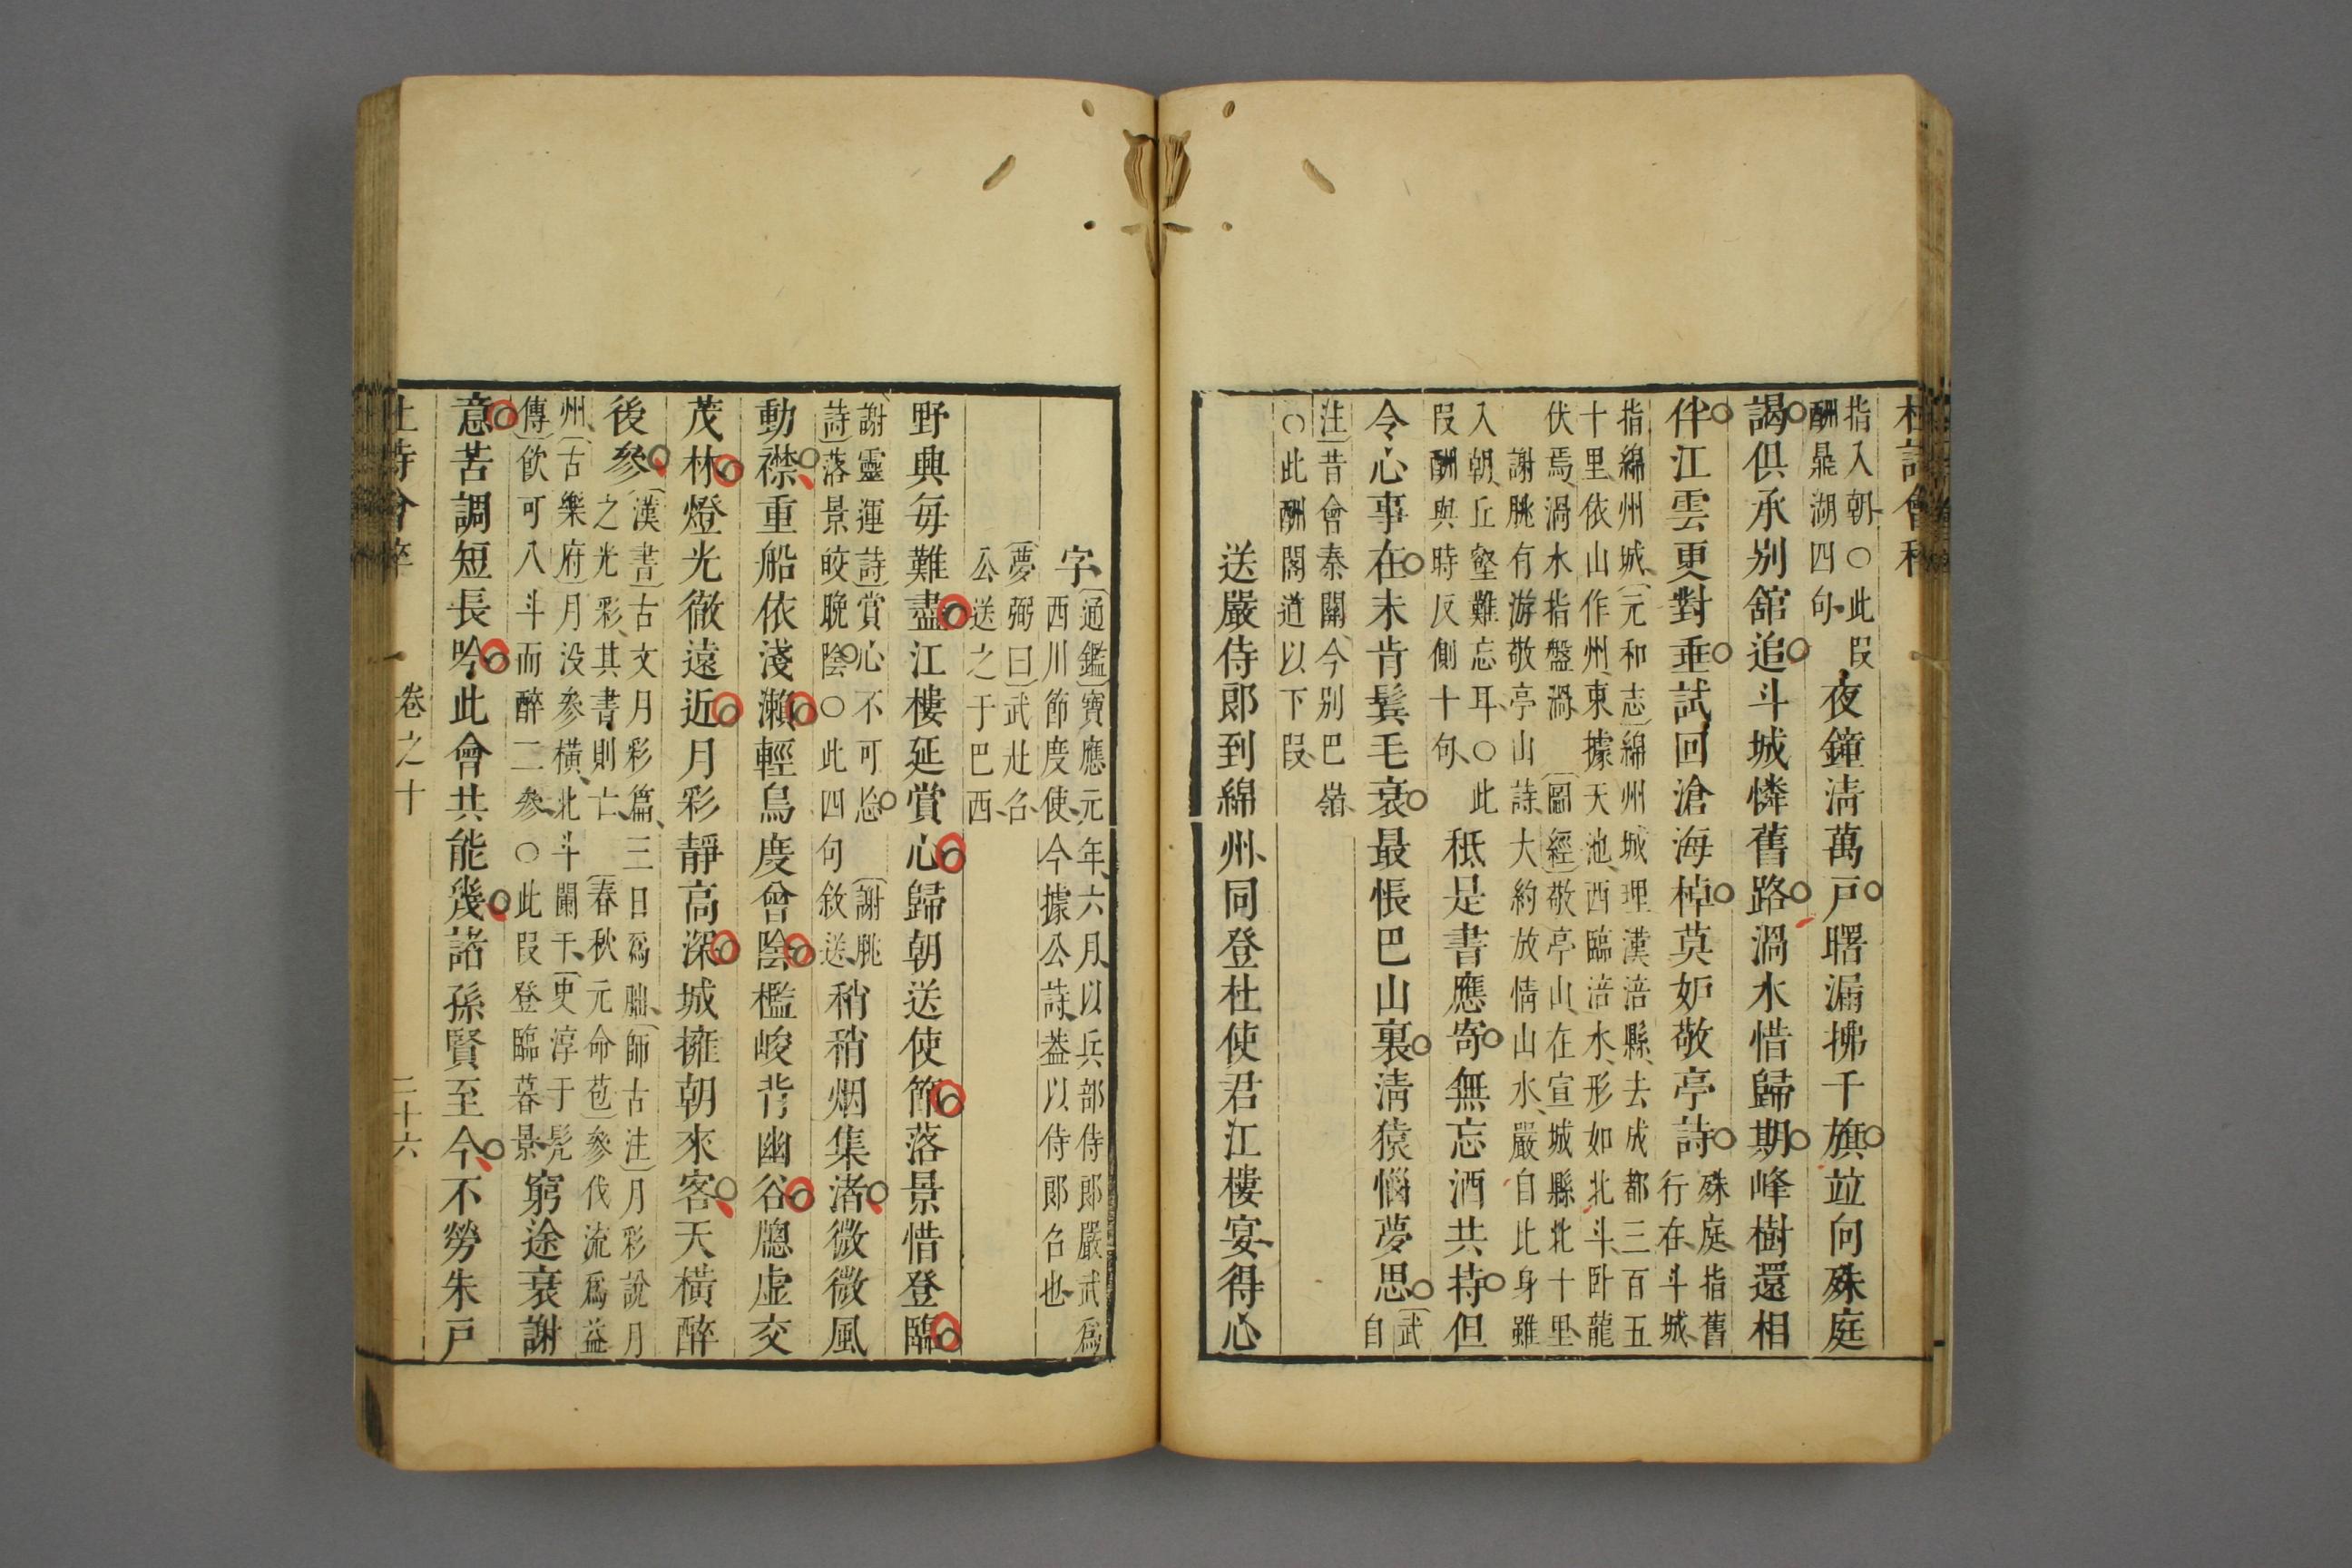 杜詩會稡
指入朝○此段
酬鼎湖四句
夜鐘清萬戶曙漏拂千旗竝向殊庭
謁俱承别館追斗城憐舊路渦水惜歸期峰樹還相
伴江雲更對垂試回滄海棹莫妒敬亭詩
殊庭指舊
行在斗城
指綿州城元和志綿州城理漢涪縣去成都三百五
十里依山作州東據天池西臨涪水形如北斗卧龍
伏焉渦水指盤渦圖經敬亭山在宣城縣北十里
謝脁有游敬亭山詩大約放情山水嚴自比身雖
入朝丘壑難忘耳○此
段酬與時反側十句
秪是書應寄無忘酒共持但
令心事在未肯鬢毛衰最悵巴山裏清猿惱夢思
武
自
注昔會秦關今别巴嶺
○此酬閣道以下段
送嚴侍郎到綿州同登杜使君江樓宴得心
字
通鑑寶應元年六月以兵部侍郎嚴武爲
西川節度使今據公詩葢以侍郎召也
夢弼曰武赴召
公送之于巴西
野興每難盡江樓延賞心歸朝送使節落景惜登臨
謝靈運詩賞心不可忘謝脁
詩落景皎晚陰○此四句敘送
稍稍烟集渚微微風
動襟重船依淺瀨輕鳥度曾陰檻峻背幽谷牕虛交
茂林燈光徹遠近月彩靜高深城擁朝來客天橫醉
後參
漢書古文月彩篇三日爲朏師古注月彩說月
之光彩其書則亡春秋元命苞參伐流爲益
州古樂府月没參橫北斗闌干史淳于髡
傳飲可八斗而醉二參○此段登臨暮景
窮途衰謝
意苦調短長吟此會共能幾諸孫賢至今不勞朱戶
杜詩會稡
卷之十
二十六